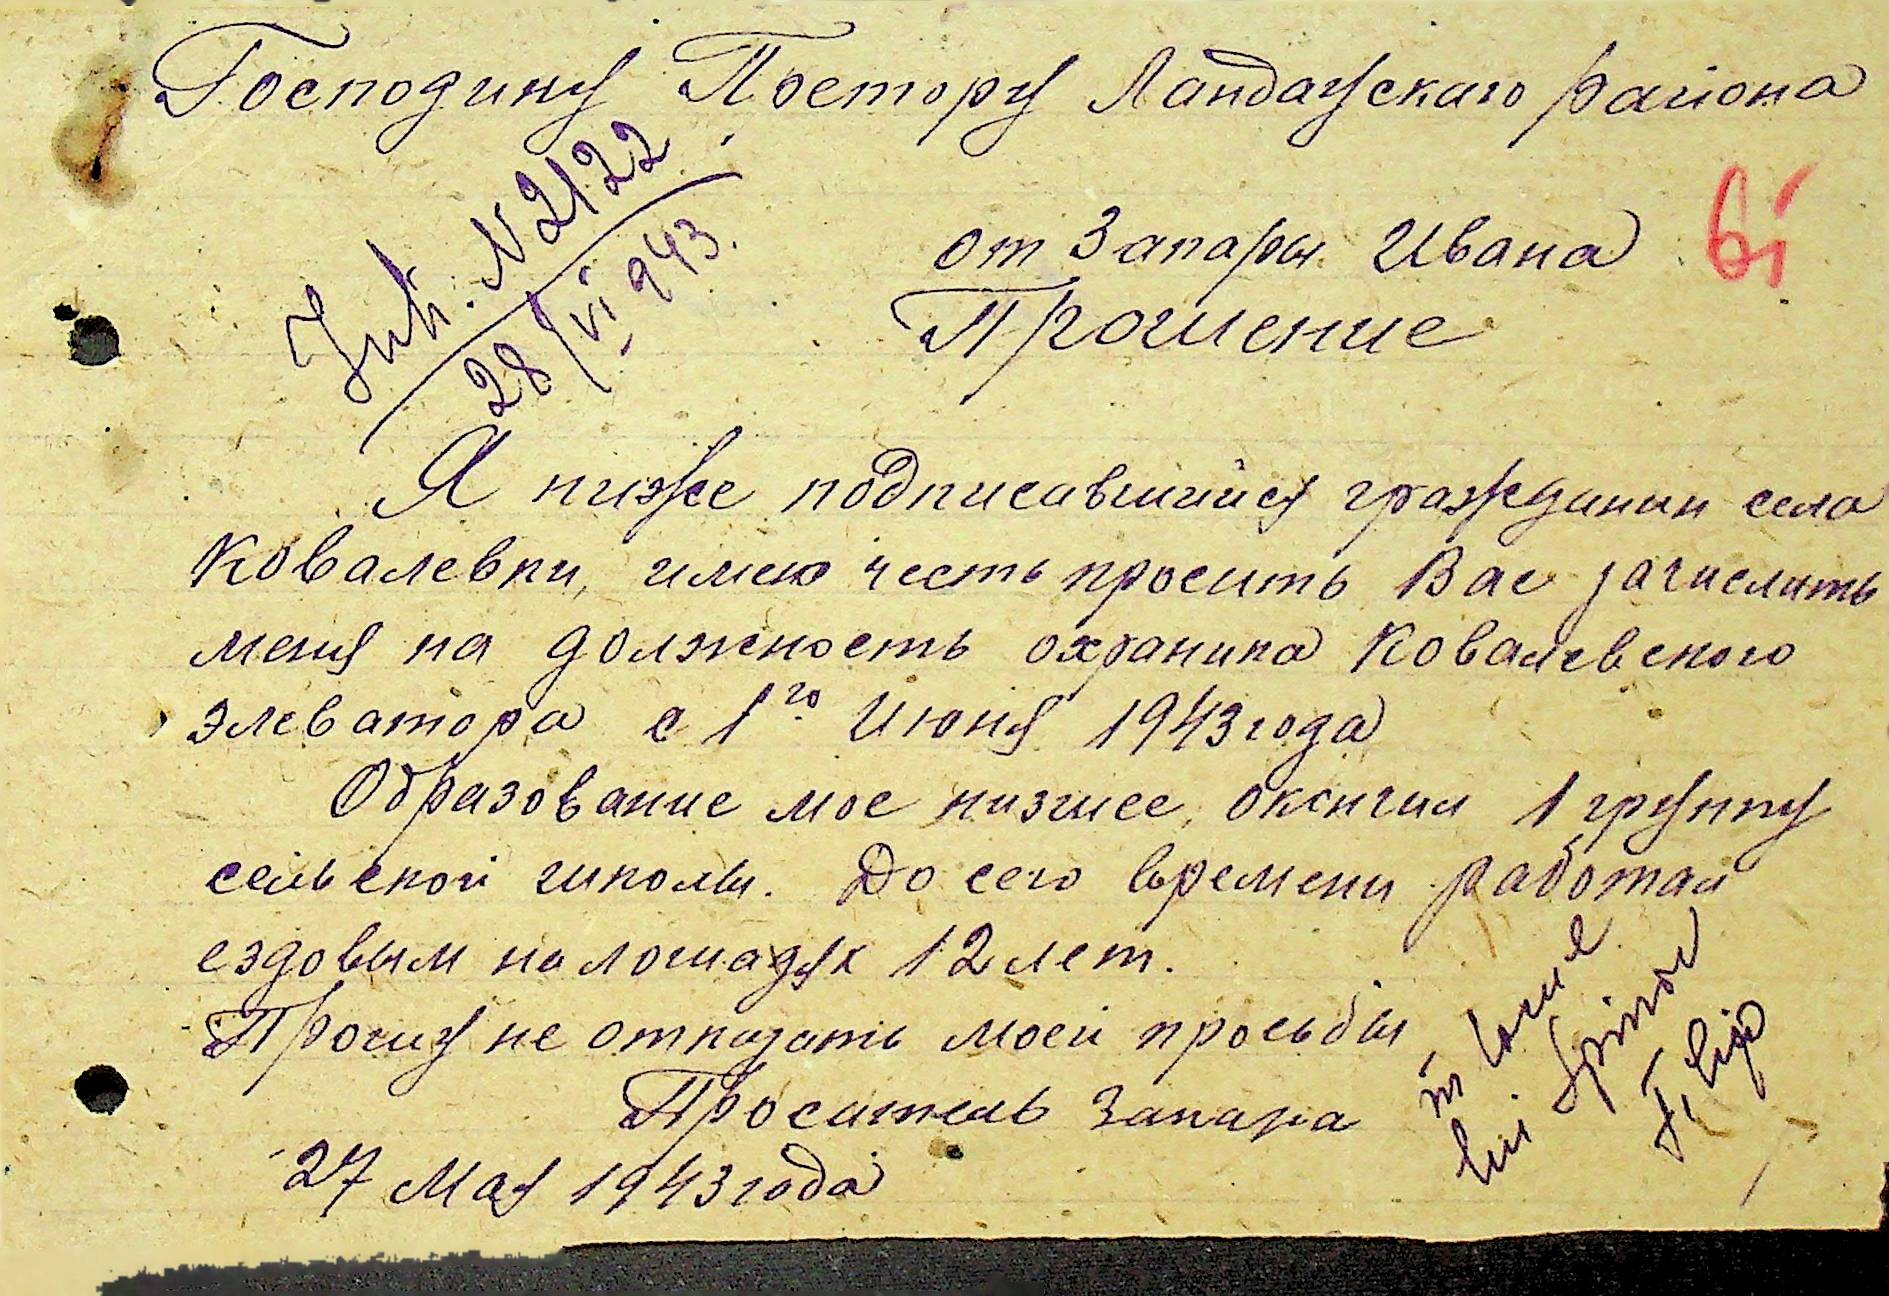 Господину Претору Ландаускаго района
Inh. N 2122
28/VI 943.
от Запары Ивана
Прошение
Я ниже подписавшийся гражданин села
Ковалевки, имею честь просить Вас зачислить
меня на должность охраника Ковалевского
элеватора с 1го Июня 1943 года
Образование мое низшее, окончил 1 группу
сельской школы. До сего времени работал
ездовым на лошадях 12 лет.
Прошу не отказать моей просьбы
Проситель Запара
27 Мая 1943 года
în locul
lui Spinov
Filip